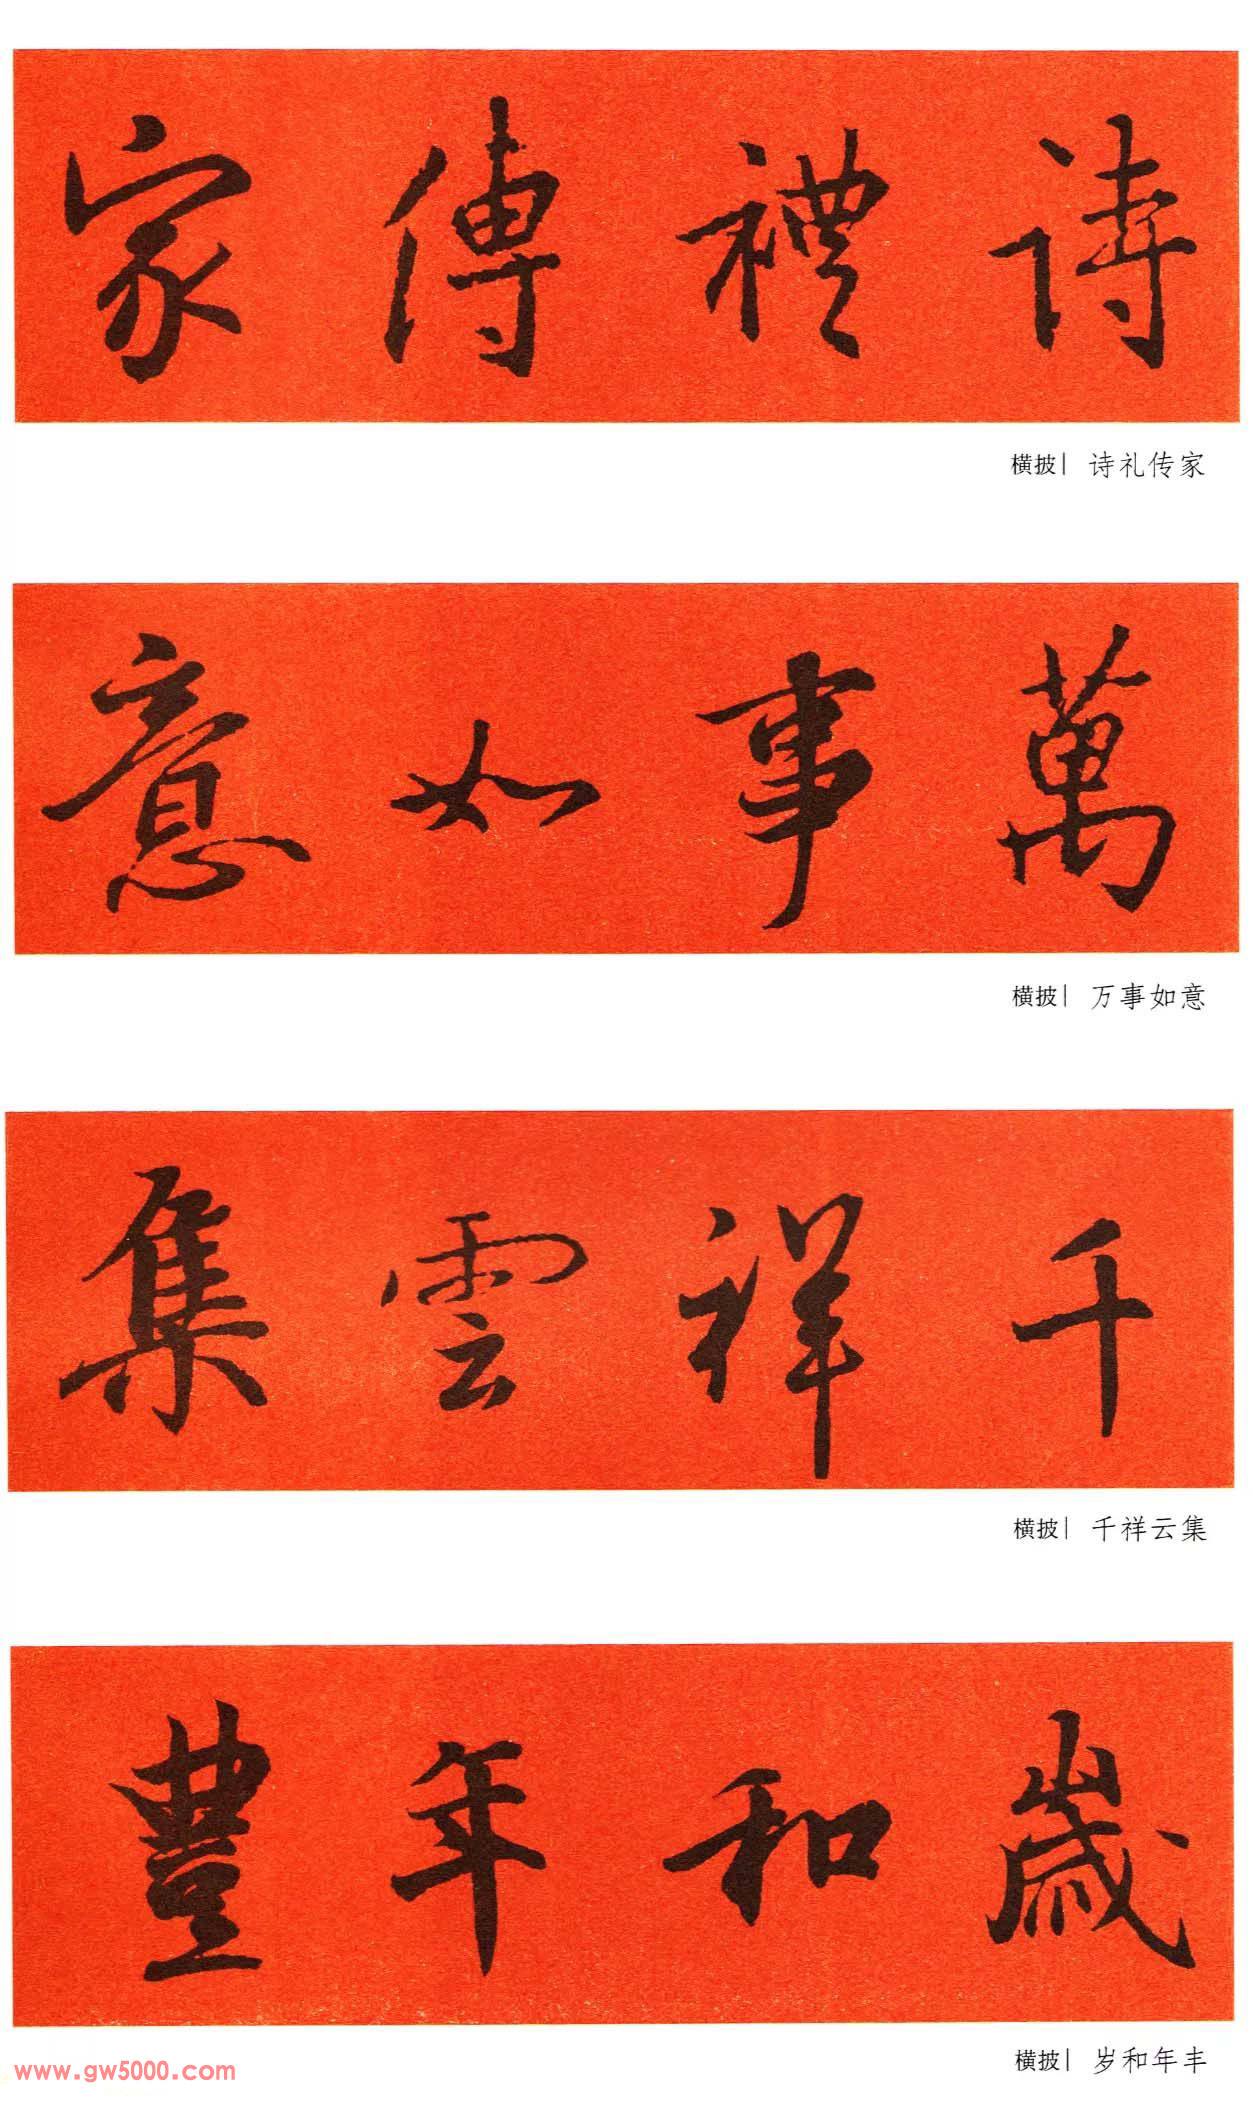 詩禮傳家
横披| 诗礼传家
萬事如意
横披| 万事如意
千祥雲集
横披| 千祥云集
歲和年豐
横披| 岁和年丰
www.gw5000.com